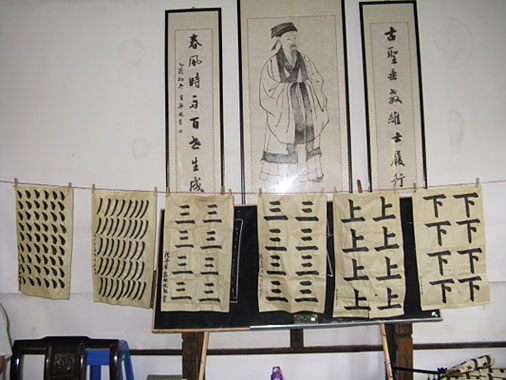 古聖垂教維士履行
春風時百生成
三三三三
三三三三
三三三三
三三三三
上上上上
上上上上
下下下下
下下下下